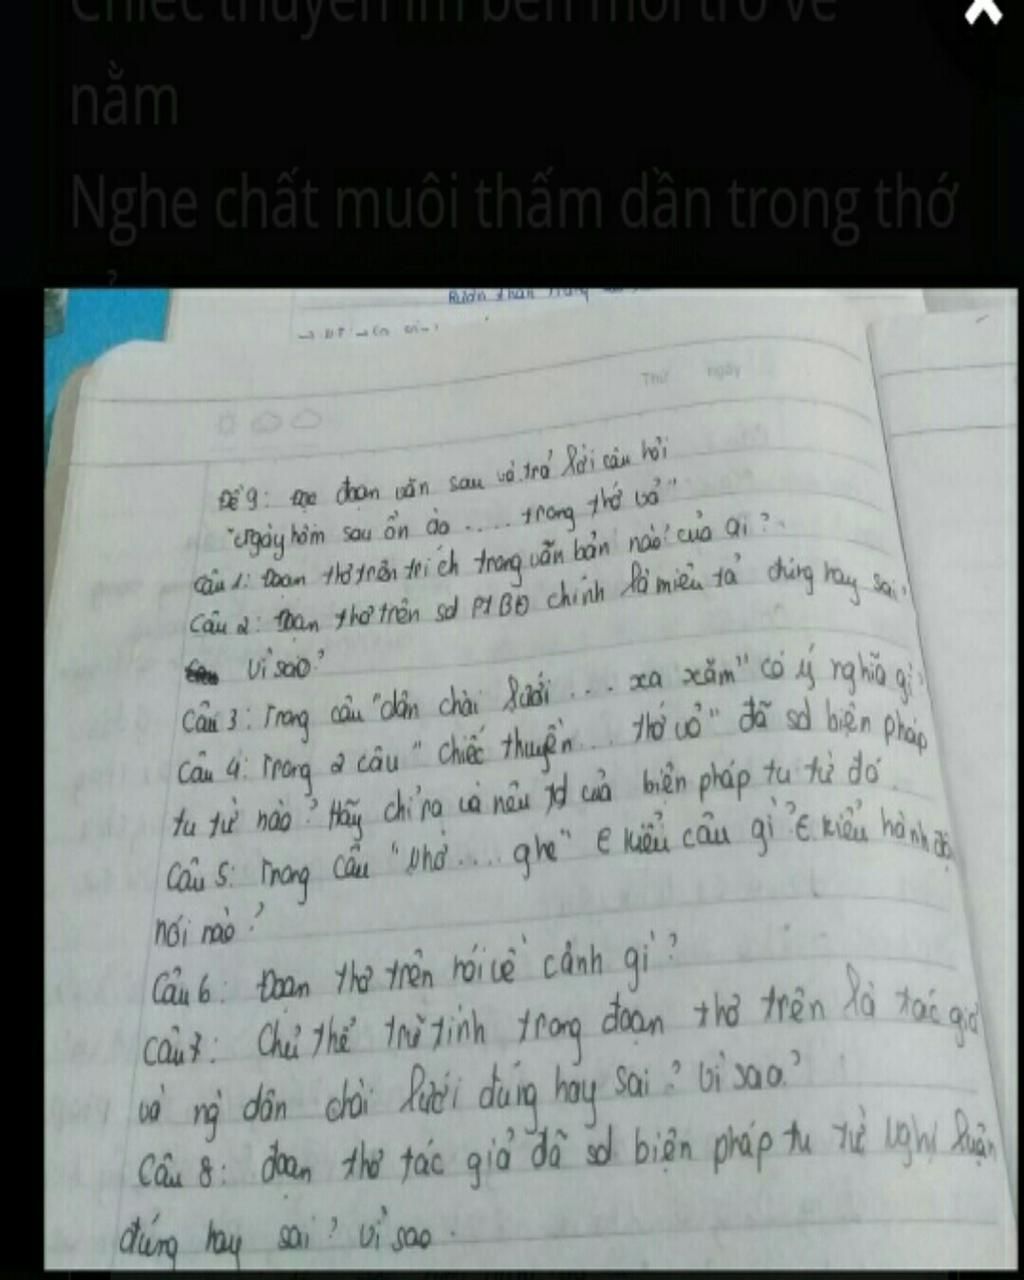 Chiếc thuyền im bến mỏi trở về
nằm
Nghe chất muối thấm dần trong thớ
Thứ ngày
Đề 9: Đọc đoạn văn sau và trả lời câu hỏi
"Ngày hôm sau ồn ào ..... trong thớ vỏ"
Câu 1: Đoạn thơ trên trích trong văn bản nào? của ai?
Câu 2: Đoạn thơ trên sd PTBĐ chính là miêu tả đúng hay sai?
Vì sao?
Câu 3: Trong câu "dân chài lưới ... xa xăm" có ý nghĩa gì?
Câu 4: Trong 2 câu "Chiếc thuyền ... thớ vỏ" đã sd biện pháp
tu từ nào? Hãy chỉ ra và nêu td của biện pháp tu từ đó.
Câu 5: Trong câu "Nhờ .... ghe" ∈ kiểu câu gì? ∈ kiểu hành độ
nói nào?
Câu 6: Đoạn thơ trên nói về cảnh gì?
Câu 7: Chủ thể trữ tình trong đoạn thơ trên là tác giả
và ng` dân chài lưới đúng hay sai? Vì sao?
Câu 8: đoạn thơ tác giả đã sd biện pháp tu từ nghị luận
đúng hay sai? Vì sao.